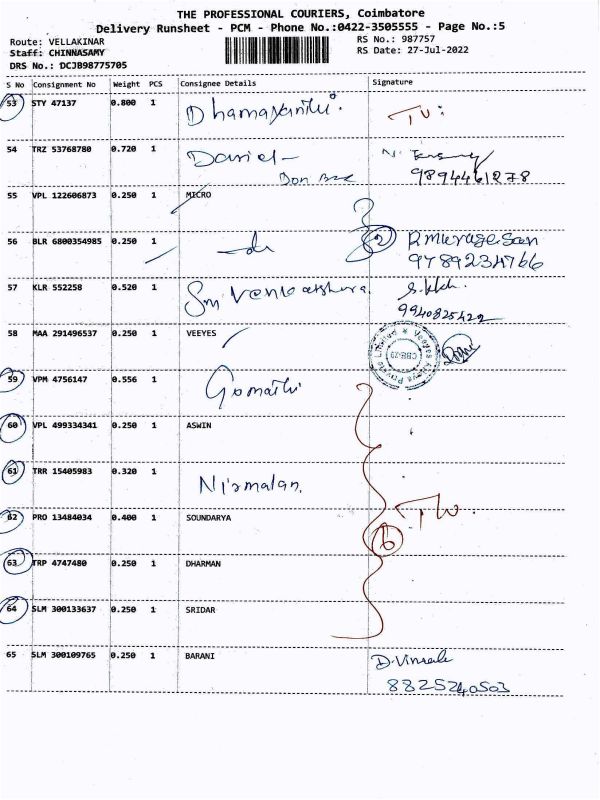 THE PROFESSIONAL COURIERS, Coimbatore
Delivery Runsheet - PCM - Phone No.:0422-3505555 - Page No.:5
Route: VELLAKINAR
RS No.: 987757
Staff: CHINNASAMY
RS Date: 27-Jul-2022
DRS No.: DCJB98775705
S No Consignment No Weight PCS Consignee Details Signature
53 STY 47137 0.800 1 Dhamayanthi.
54 TRZ 53768780 0.720 1 Daniel-
9894461278
55 VPL 122606873 0.250 1 MICRO
56 BLR 6800354985 0.250 1 -do 2 P.Murugesan
9789234766
57 KLR 552258 0.520 1 Sri Venkateshwara
9940825422
58 MAA 291496537 0.250 1 VEEYES
59 VPM 4756147 0.556 1 Gomathi
60 VPL 499334341 0.250 1 ASWIN
61 TRR 15405983 0.320 1 Nirmalan.
62 PRO 13484034 0.400 1 SOUNDARYA 6
63 TRP 4747480 0.250 1 DHARMAN
64 SLM 300133637 0.250 1 SRIDAR
65 SLM 300109765 0.250 1 BARANI
8825240503